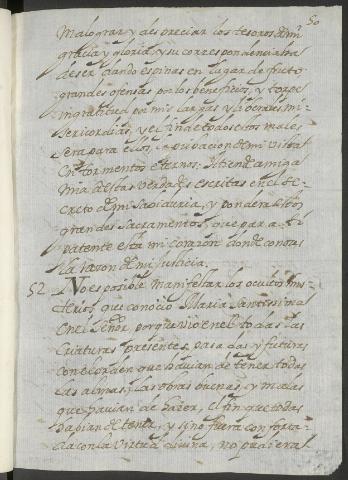 50
Malograr y despreciar los tesoros de mi
gracia y gloria, y su correspondencia ha
de ser dando espinas en lugar de fruto
grandes ofensas por los beneficios, y torpe
ingratitud por mis largas y liberales mi-
sericordias, y el fin de todos estos males
sera para ellos, la privacion de mi vista
en tormentos eternos. Atiende amiga
mia a estas verdades escritas en el se-
creto de mi Sapiduria, y pondera estos
grandes Sacramentos, que para ti
patente esta mi corazon donde conoces
la razon de mi justicia.
52 No es posible manifestar los ocultos mis-
terios, que conocio Maria Santissima
en el Señor, porque vio en el todas las
criaturas presentes, pasadas y futuras
con el orden que havian de tener todas
las almas, y las obras buenas, y malas
que havian de hazer, el fin que todas
habian de tener, y si no fuera conforta-
da con la virtud divina, no pudiera